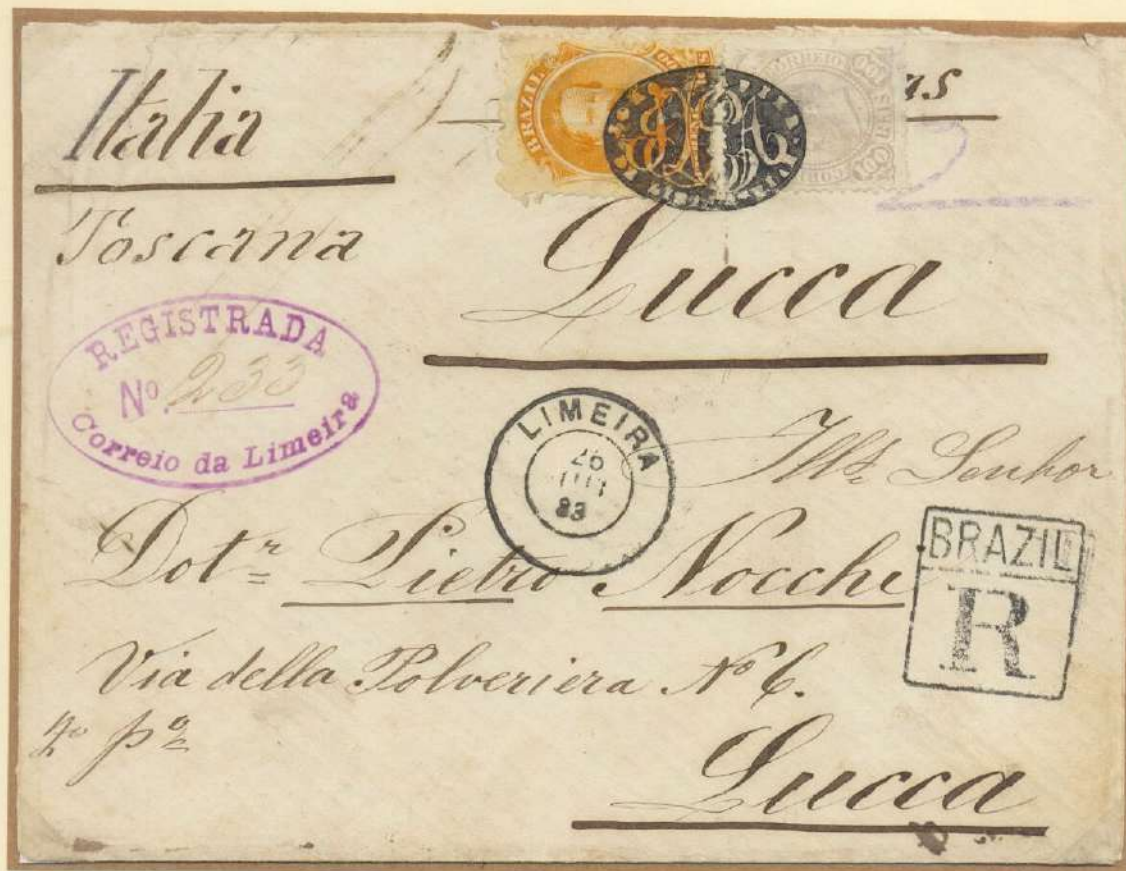 Italia
BRAZIL
CORREIO
100 RÉIS 100
as
Toscana
Lucca
REGISTRADA
Nº 233
Correio da Limeira
LIMEIRA
26
83
Illº Senhor
Dotr Pietro Nocchi
BRAZIL
R
Via della Polveriera Nº 6.
Lucca